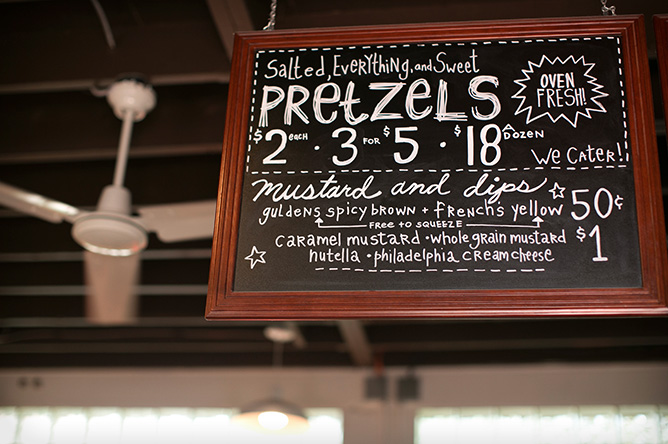 Salted, Everything, and Sweet
PRETZELS
OVEN
FRESH!
$2 each · 3 for $5 · $18 a dozen
We Cater!
mustard and dips 50¢
guldens spicy brown + french's yellow
FREE to SQUEEZE
caramel mustard · whole grain mustard $1
nutella · philadelphia cream cheese